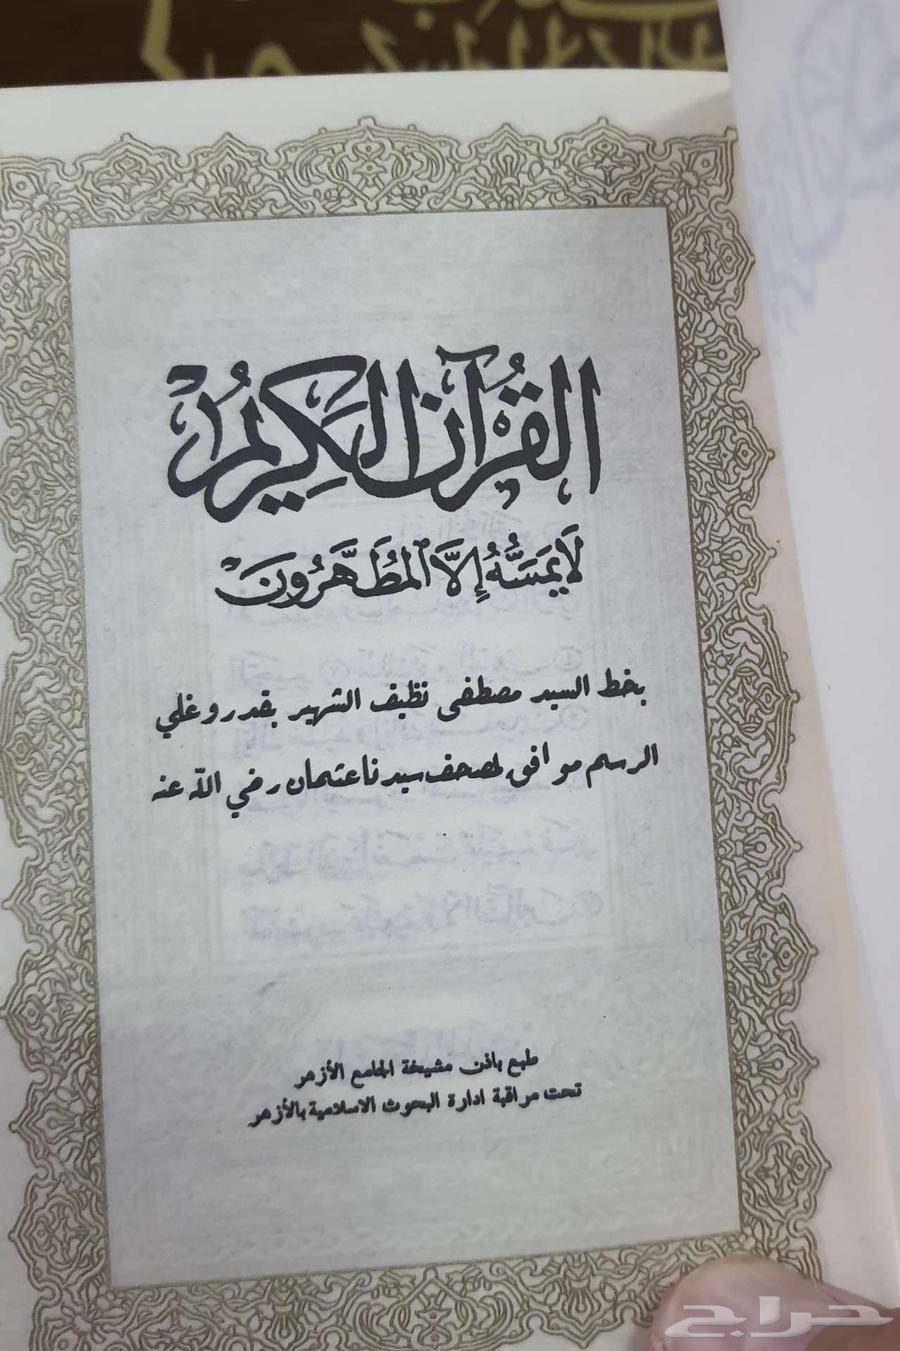 القُرْآنُ الكَرِيمُ
لَا يَمَسُّهُ إِلَّا ٱلْمُطَهَّرُونَ
بخط السيد مصطفى نظيف الشهير بقدروغلي
الرسم موافق لمصحف سيدنا عثمان رضي الله عنه
طبع باذن مشيخة الجامع الأزهر
تحت مراقبة ادارة البحوث الاسلامية بالأزهر
حراج